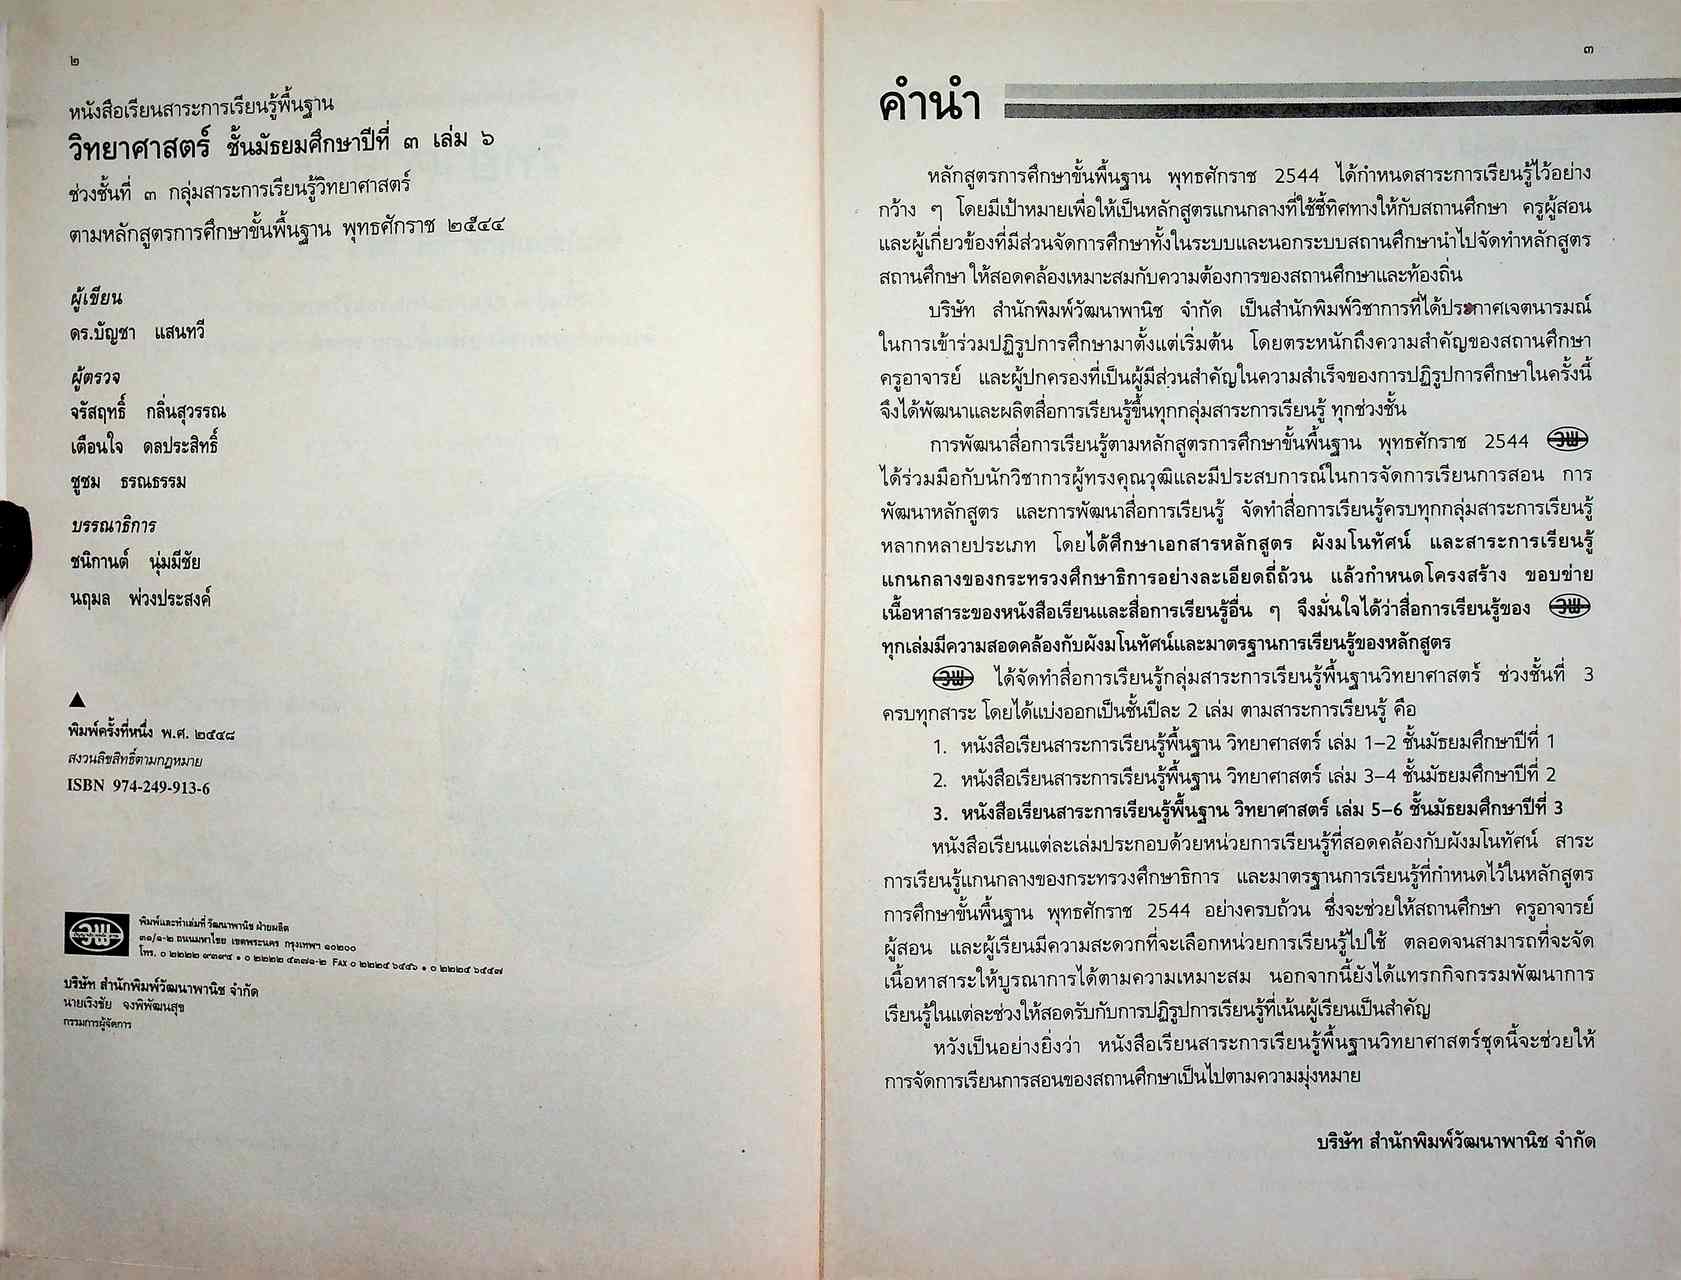 ๒
หนังสือเรียนสาระการเรียนรู้พื้นฐาน
วิทยาศาสตร์ ชั้นมัธยมศึกษาปีที่ ๓ เล่ม ๖
ช่วงชั้นที่ ๓ กลุ่มสาระการเรียนรู้วิทยาศาสตร์
ตามหลักสูตรการศึกษาขั้นพื้นฐาน พุทธศักราช ๒๕๔๔
ผู้เขียน
ดร.บัญชา แสนทวี
ผู้ตรวจ
จรัสฤทธิ์ กลิ่นสุวรรณ
เตือนใจ ดลประสิทธิ์
ชูชม ธรณธรรม
บรรณาธิการ
ชนิกานต์ นุ่มมีชัย
นฤมล พ่วงประสงค์
พิมพ์ครั้งที่หนึ่ง พ.ศ. ๒๕๔๘
สงวนลิขสิทธิ์ตามกฎหมาย
ISBN 974-249-913-6
วพ
พิมพ์และทำเล่มที่ วัฒนาพานิช ฝ่ายผลิต
๓๑/๑-๒ ถนนมหาไชย เขตพระนคร กรุงเทพฯ ๑๐๒๐๐
โทร. ๐ ๒๒๒๒ ๙๓๙๔ • ๐ ๒๒๒๒ ๕๓๗๑-๒ FAX ๐ ๒๒๒๕ ๖๕๕๖ • ๐ ๒๒๒๕ ๖๕๕๗
บริษัท สำนักพิมพ์วัฒนาพานิช จำกัด
นายเริงชัย จงพิพัฒนสุข
กรรมการผู้จัดการ
๓
คำนำ
หลักสูตรการศึกษาขั้นพื้นฐาน พุทธศักราช 2544 ได้กำหนดสาระการเรียนรู้ไว้อย่าง
กว้าง ๆ โดยมีเป้าหมายเพื่อให้เป็นหลักสูตรแกนกลางที่ใช้ชี้ทิศทางให้กับสถานศึกษา ครูผู้สอน
และผู้เกี่ยวข้องที่มีส่วนจัดการศึกษาทั้งในระบบและนอกระบบสถานศึกษานำไปจัดทำหลักสูตร
สถานศึกษา ให้สอดคล้องเหมาะสมกับความต้องการของสถานศึกษาและท้องถิ่น
บริษัท สำนักพิมพ์วัฒนาพานิช จำกัด เป็นสำนักพิมพ์วิชาการที่ได้ประกาศเจตนารมณ์
ในการเข้าร่วมปฏิรูปการศึกษามาตั้งแต่เริ่มต้น โดยตระหนักถึงความสำคัญของสถานศึกษา
ครูอาจารย์ และผู้ปกครองที่เป็นผู้มีส่วนสำคัญในความสำเร็จของการปฏิรูปการศึกษาในครั้งนี้
จึงได้พัฒนาและผลิตสื่อการเรียนรู้ขึ้นทุกกลุ่มสาระการเรียนรู้ ทุกช่วงชั้น
การพัฒนาสื่อการเรียนรู้ตามหลักสูตรการศึกษาขั้นพื้นฐาน พุทธศักราช 2544 วพ
ได้ร่วมมือกับนักวิชาการผู้ทรงคุณวุฒิและมีประสบการณ์ในการจัดการเรียนการสอน การ
พัฒนาหลักสูตร และการพัฒนาสื่อการเรียนรู้ จัดทำสื่อการเรียนรู้ครบทุกกลุ่มสาระการเรียนรู้
หลากหลายประเภท โดยได้ศึกษาเอกสารหลักสูตร ผังมโนทัศน์ และสาระการเรียนรู้
แกนกลางของกระทรวงศึกษาธิการอย่างละเอียดถี่ถ้วน แล้วกำหนดโครงสร้าง ขอบข่าย
เนื้อหาสาระของหนังสือเรียนและสื่อการเรียนรู้อื่น ๆ จึงมั่นใจได้ว่าสื่อการเรียนรู้ของ วพ
ทุกเล่มมีความสอดคล้องกับผังมโนทัศน์และมาตรฐานการเรียนรู้ของหลักสูตร
วพ ได้จัดทำสื่อการเรียนรู้กลุ่มสาระการเรียนรู้พื้นฐานวิทยาศาสตร์ ช่วงชั้นที่ 3
ครบทุกสาระ โดยได้แบ่งออกเป็นชั้นปีละ 2 เล่ม ตามสาระการเรียนรู้ คือ
1. หนังสือเรียนสาระการเรียนรู้พื้นฐาน วิทยาศาสตร์ เล่ม 1–2 ชั้นมัธยมศึกษาปีที่ 1
2. หนังสือเรียนสาระการเรียนรู้พื้นฐาน วิทยาศาสตร์ เล่ม 3–4 ชั้นมัธยมศึกษาปีที่ 2
3. หนังสือเรียนสาระการเรียนรู้พื้นฐาน วิทยาศาสตร์ เล่ม 5–6 ชั้นมัธยมศึกษาปีที่ 3
หนังสือเรียนแต่ละเล่มประกอบด้วยหน่วยการเรียนรู้ที่สอดคล้องกับผังมโนทัศน์ สาระ
การเรียนรู้แกนกลางของกระทรวงศึกษาธิการ และมาตรฐานการเรียนรู้ที่กำหนดไว้ในหลักสูตร
การศึกษาขั้นพื้นฐาน พุทธศักราช 2544 อย่างครบถ้วน ซึ่งจะช่วยให้สถานศึกษา ครูอาจารย์
ผู้สอน และผู้เรียนมีความสะดวกที่จะเลือกหน่วยการเรียนรู้ไปใช้ ตลอดจนสามารถที่จะจัด
เนื้อหาสาระให้บูรณาการได้ตามความเหมาะสม นอกจากนี้ยังได้แทรกกิจกรรมพัฒนาการ
เรียนรู้ในแต่ละช่วงให้สอดรับกับการปฏิรูปการเรียนรู้ที่เน้นผู้เรียนเป็นสำคัญ
หวังเป็นอย่างยิ่งว่า หนังสือเรียนสาระการเรียนรู้พื้นฐานวิทยาศาสตร์ชุดนี้จะช่วยให้
การจัดการเรียนการสอนของสถานศึกษาเป็นไปตามความมุ่งหมาย
บริษัท สำนักพิมพ์วัฒนาพานิช จำกัด